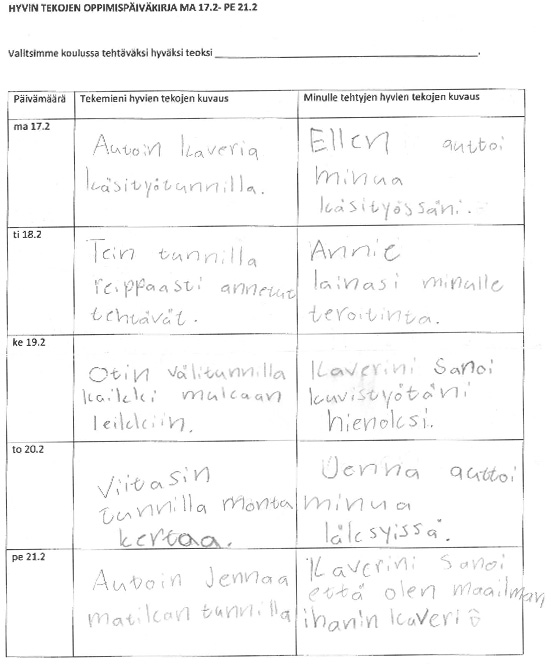 HYVIN TEKOJEN OPPIMISPÄIVÄKIRJA MA 17.2- PE 21.2
Valitsimme koulussa tehtäväksi hyväksi teoksi ___.
Päivämäärä
Tekemieni hyvien tekojen kuvaus
Minulle tehtyjen hyvien tekojen kuvaus
ma 17.2
Autoin kaveria
käsityötunnilla.
Ellen auttoi
minua
käsityössäni.
ti 18.2
Tein tunnilla
reippaasti annetut
tehtävät.
Annie
lainasi minulle
teroitinta.
ke 19.2
Otin välitunnilla
kaikki mukaan
leikkiin.
Kaverini sanoi
kuvistyötäni
hienoksi.
to 20.2
Viitasin
tunnilla monta
kertaa.
Jenna auttoi
minua
läksyissä.
pe 21.2
Autoin Jennaa
matikan tunnilla
Kaverini sanoi
että olen maailman
ihanin kaveri